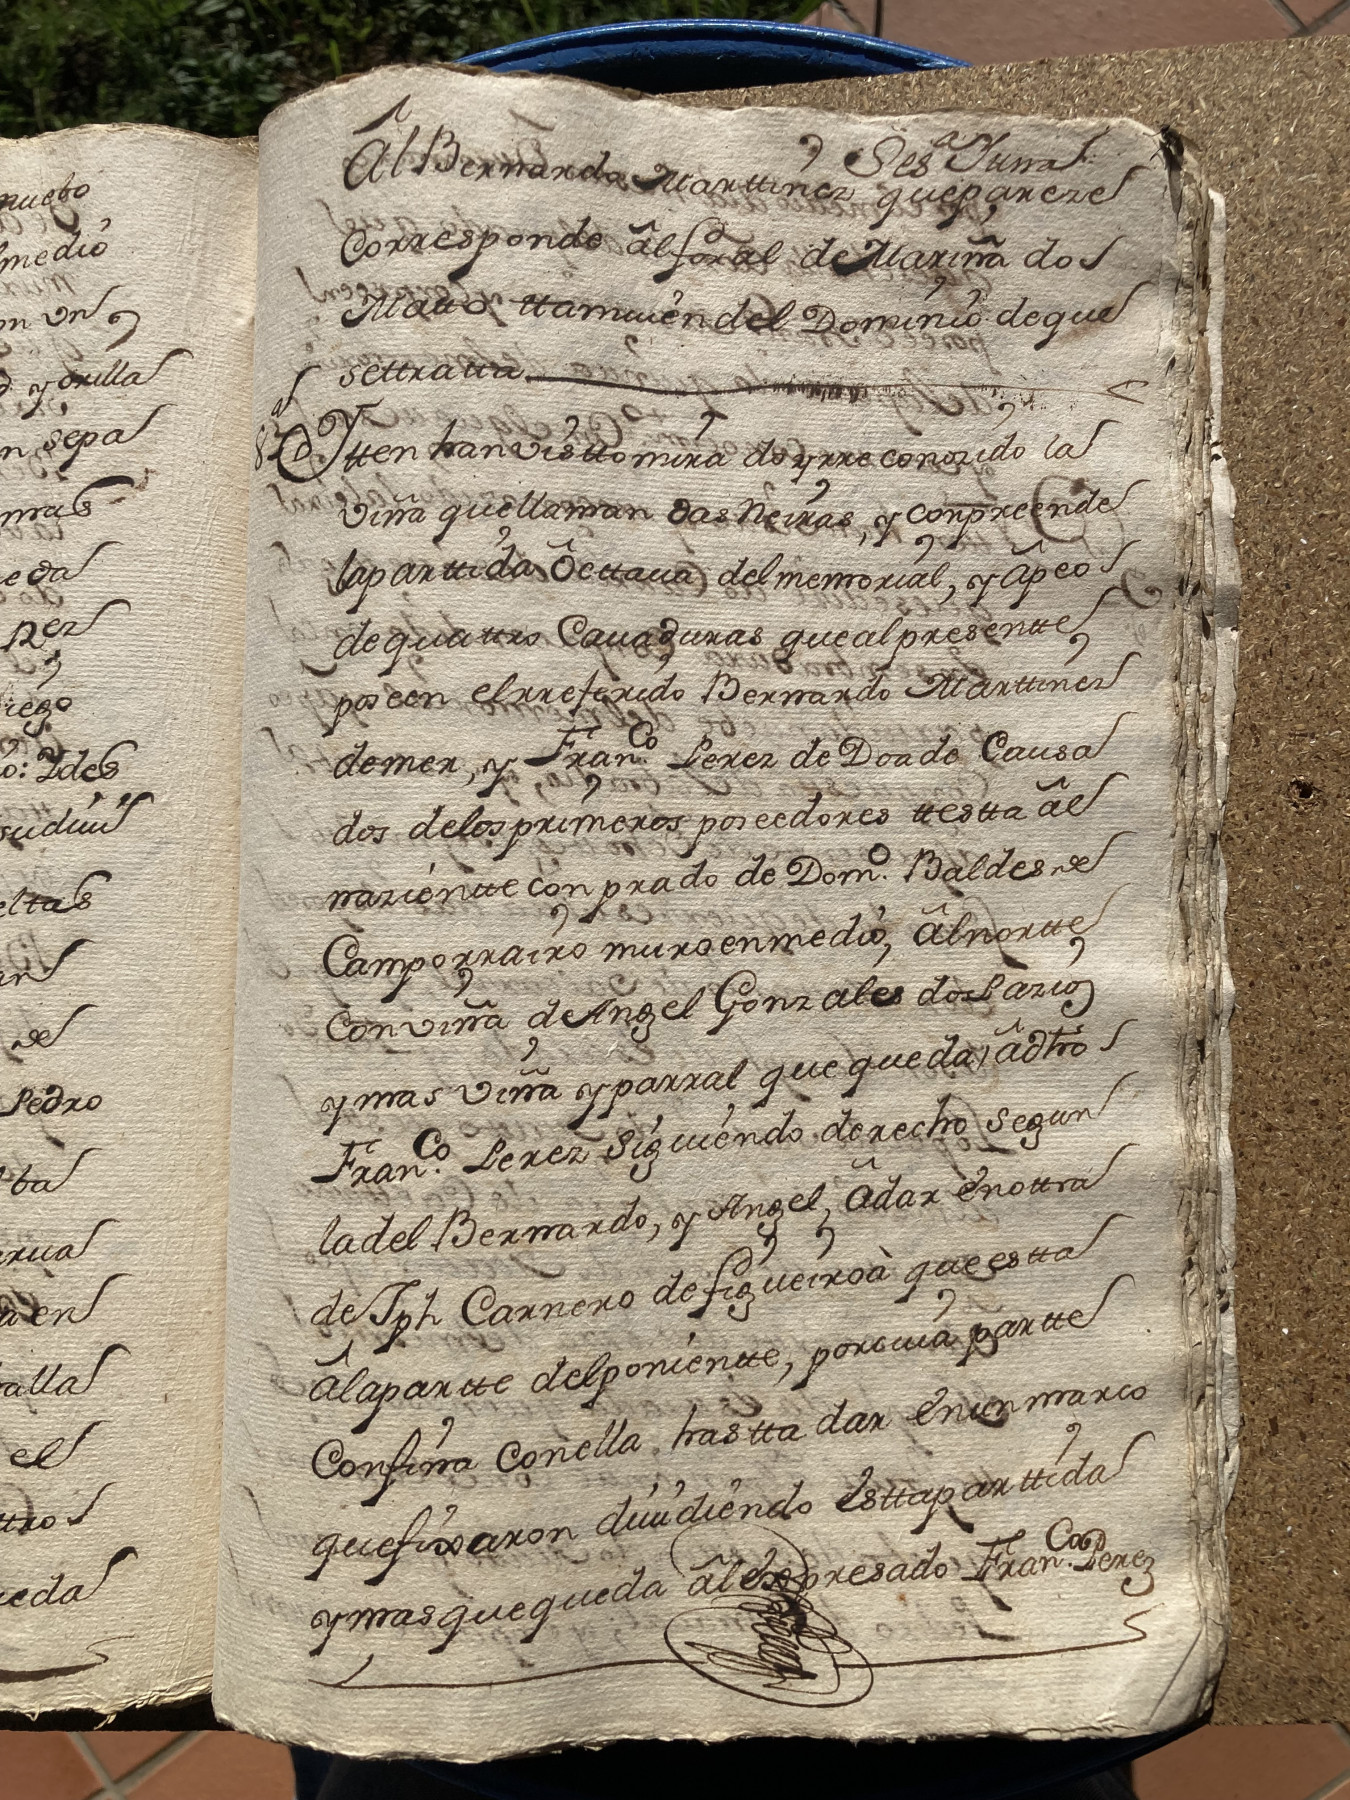 nuebo
lmedio
on vn
y orilla
n sepa
mas
eda
Rez
iego
o: Ydes
sudiui
eltas
an
de
Pedro
ba
erua
a en
alla
el
ttro
ueda
Sesª
Âl Bernardo Marttinez que pareze
Corresponde âl foral de Mariña do
Matto ttamuien del Dominio de que
settratta
8ª Ytten han vistto mira do y rreconozido la
viña que llaman das Neiras, y conpreende
la parttida Ôcttaua del memorial, y âpeo
de quattro Cauaduras que al presentte
poseen el rreferido Bernardo Marttinez
de mer, y Fran.co Perez de Doade Causa
dos de los primeros poseedores ttestta âl
nazientte con prado de Dom.o Baldes de
Camporrairo muro en medio, âl nortte
Con viña de Angel Gonzales do Pazio
y mas viña y parral que queda, â dho
Fran.co Perez Siguiendo derecho segun
la del Bernardo, y Angel, âdar en ottra
de Jph Carnero de figueiroà que estta
Âla partte del ponientte, por cuia partte
Confina con ella hastta dar en un marco
que fixaron diuidiendo estta parttida
y mas que queda âl expresado Fran.co Perez